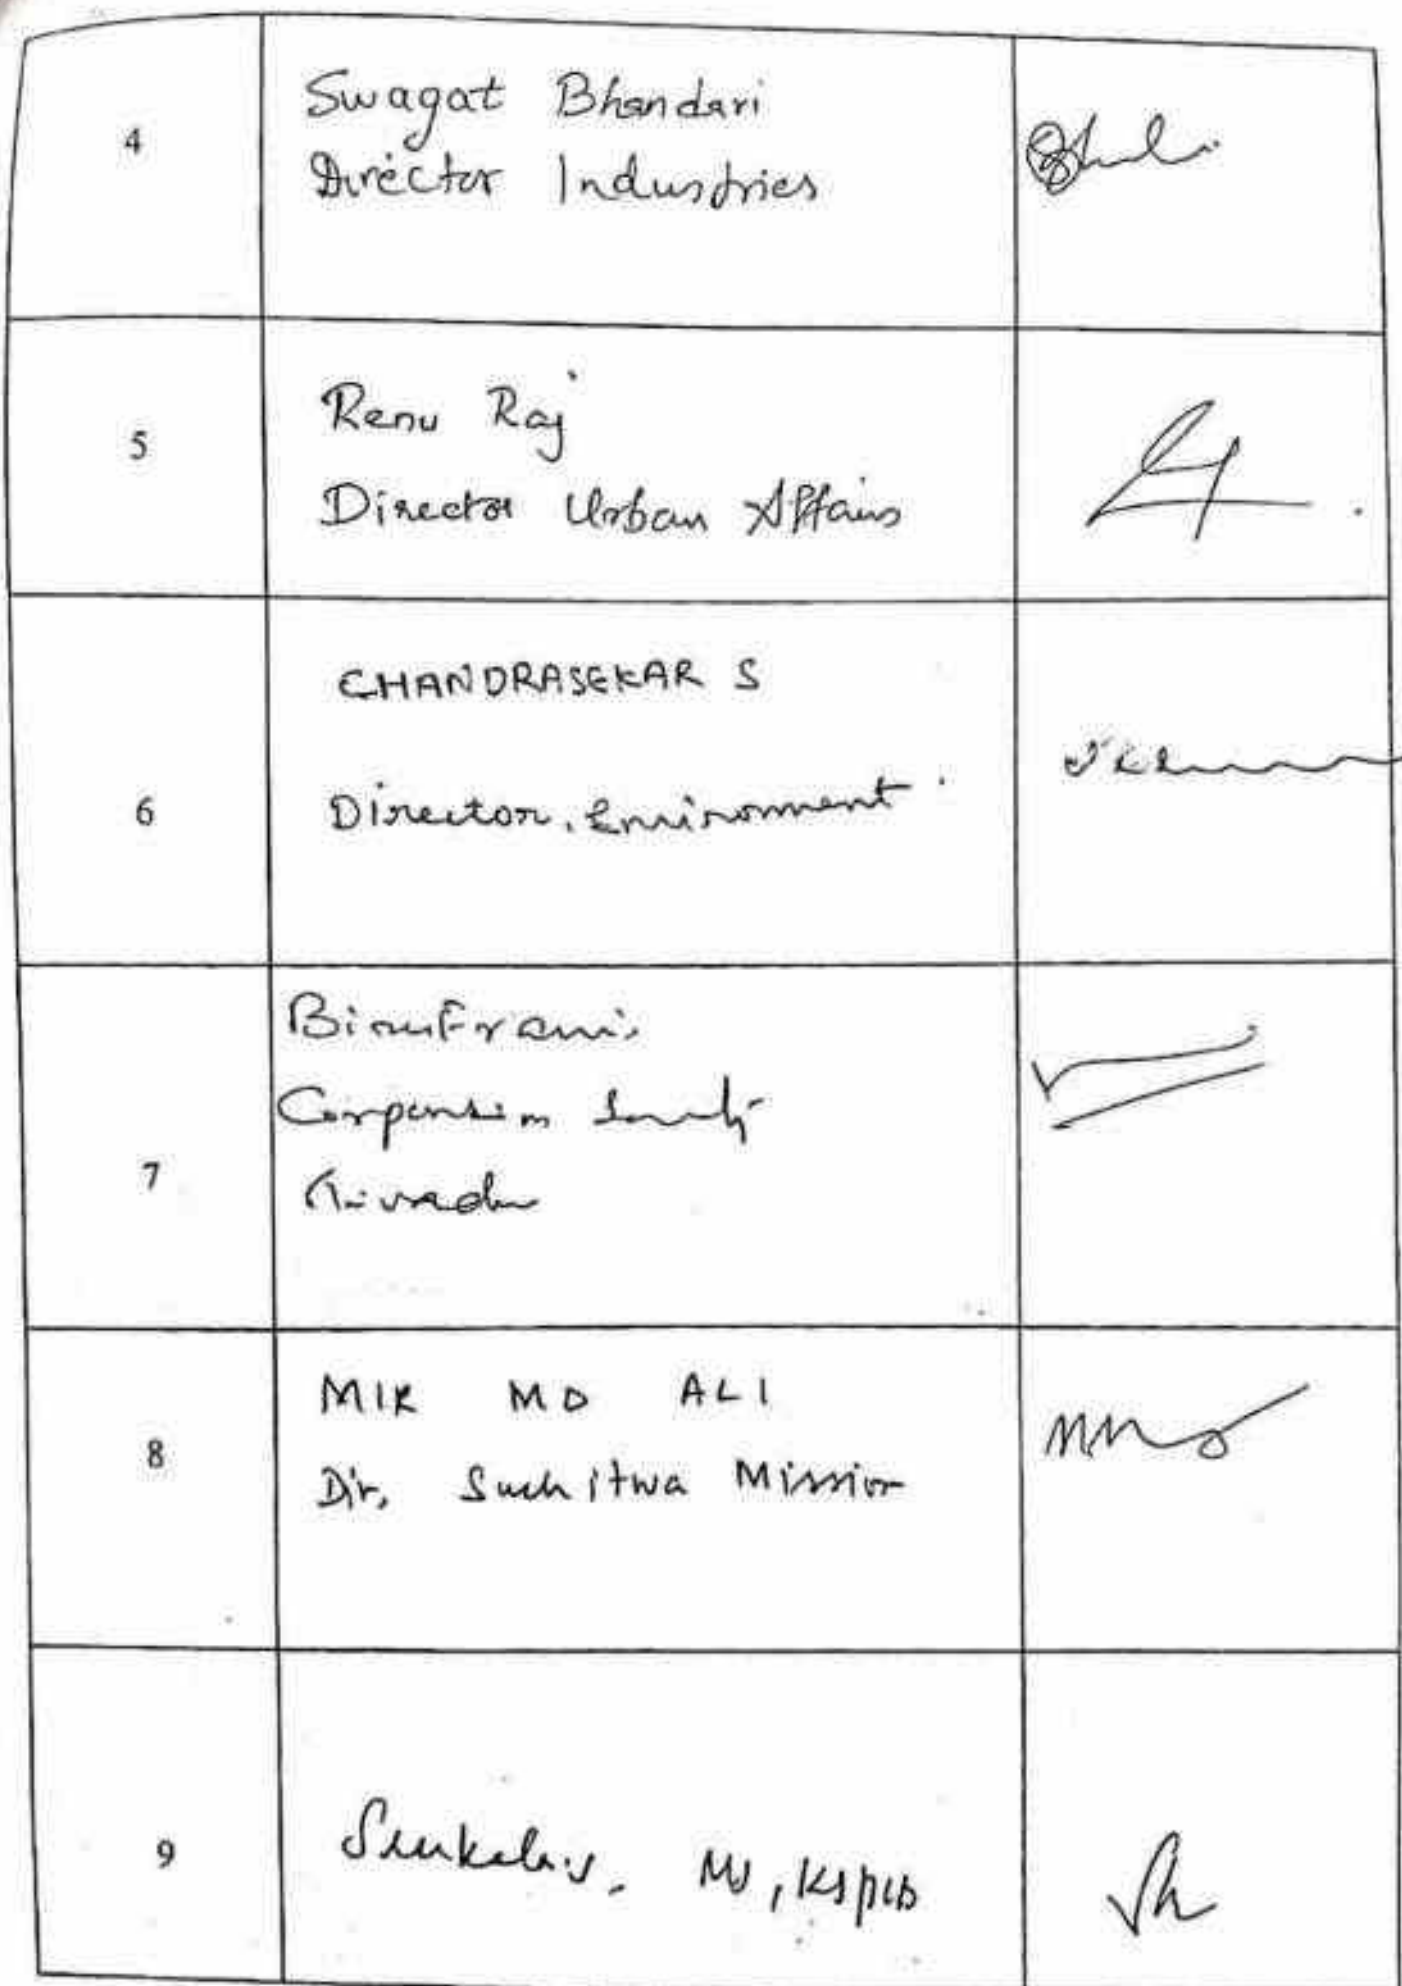 4
Swagat Bhandari
Director Industries
5
Renu Raj
Director Urban Affairs
6
CHANDRASEKAR S
Director, Environment
7
Corporation
8
MIR MD ALI
Dir, Suchitwa Mission
9
Sreekala.S, MS, KSPCB